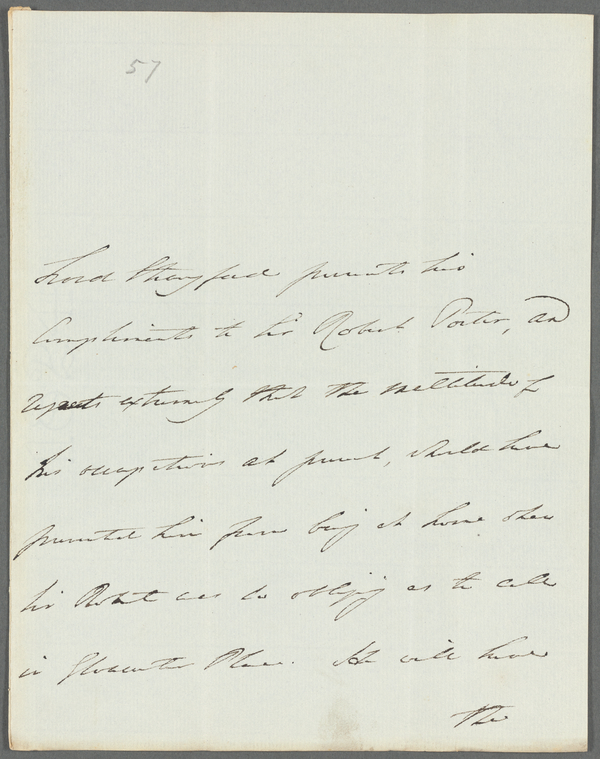 57
Lord Strangford presents his
Compliments to Sir Robert Porter, and
regrets extremely that the multitude of
his occupations at present, should have
prevented him from being at home when
Sir Robert was so obliging as to call
in Gloucester Place. He will have
the